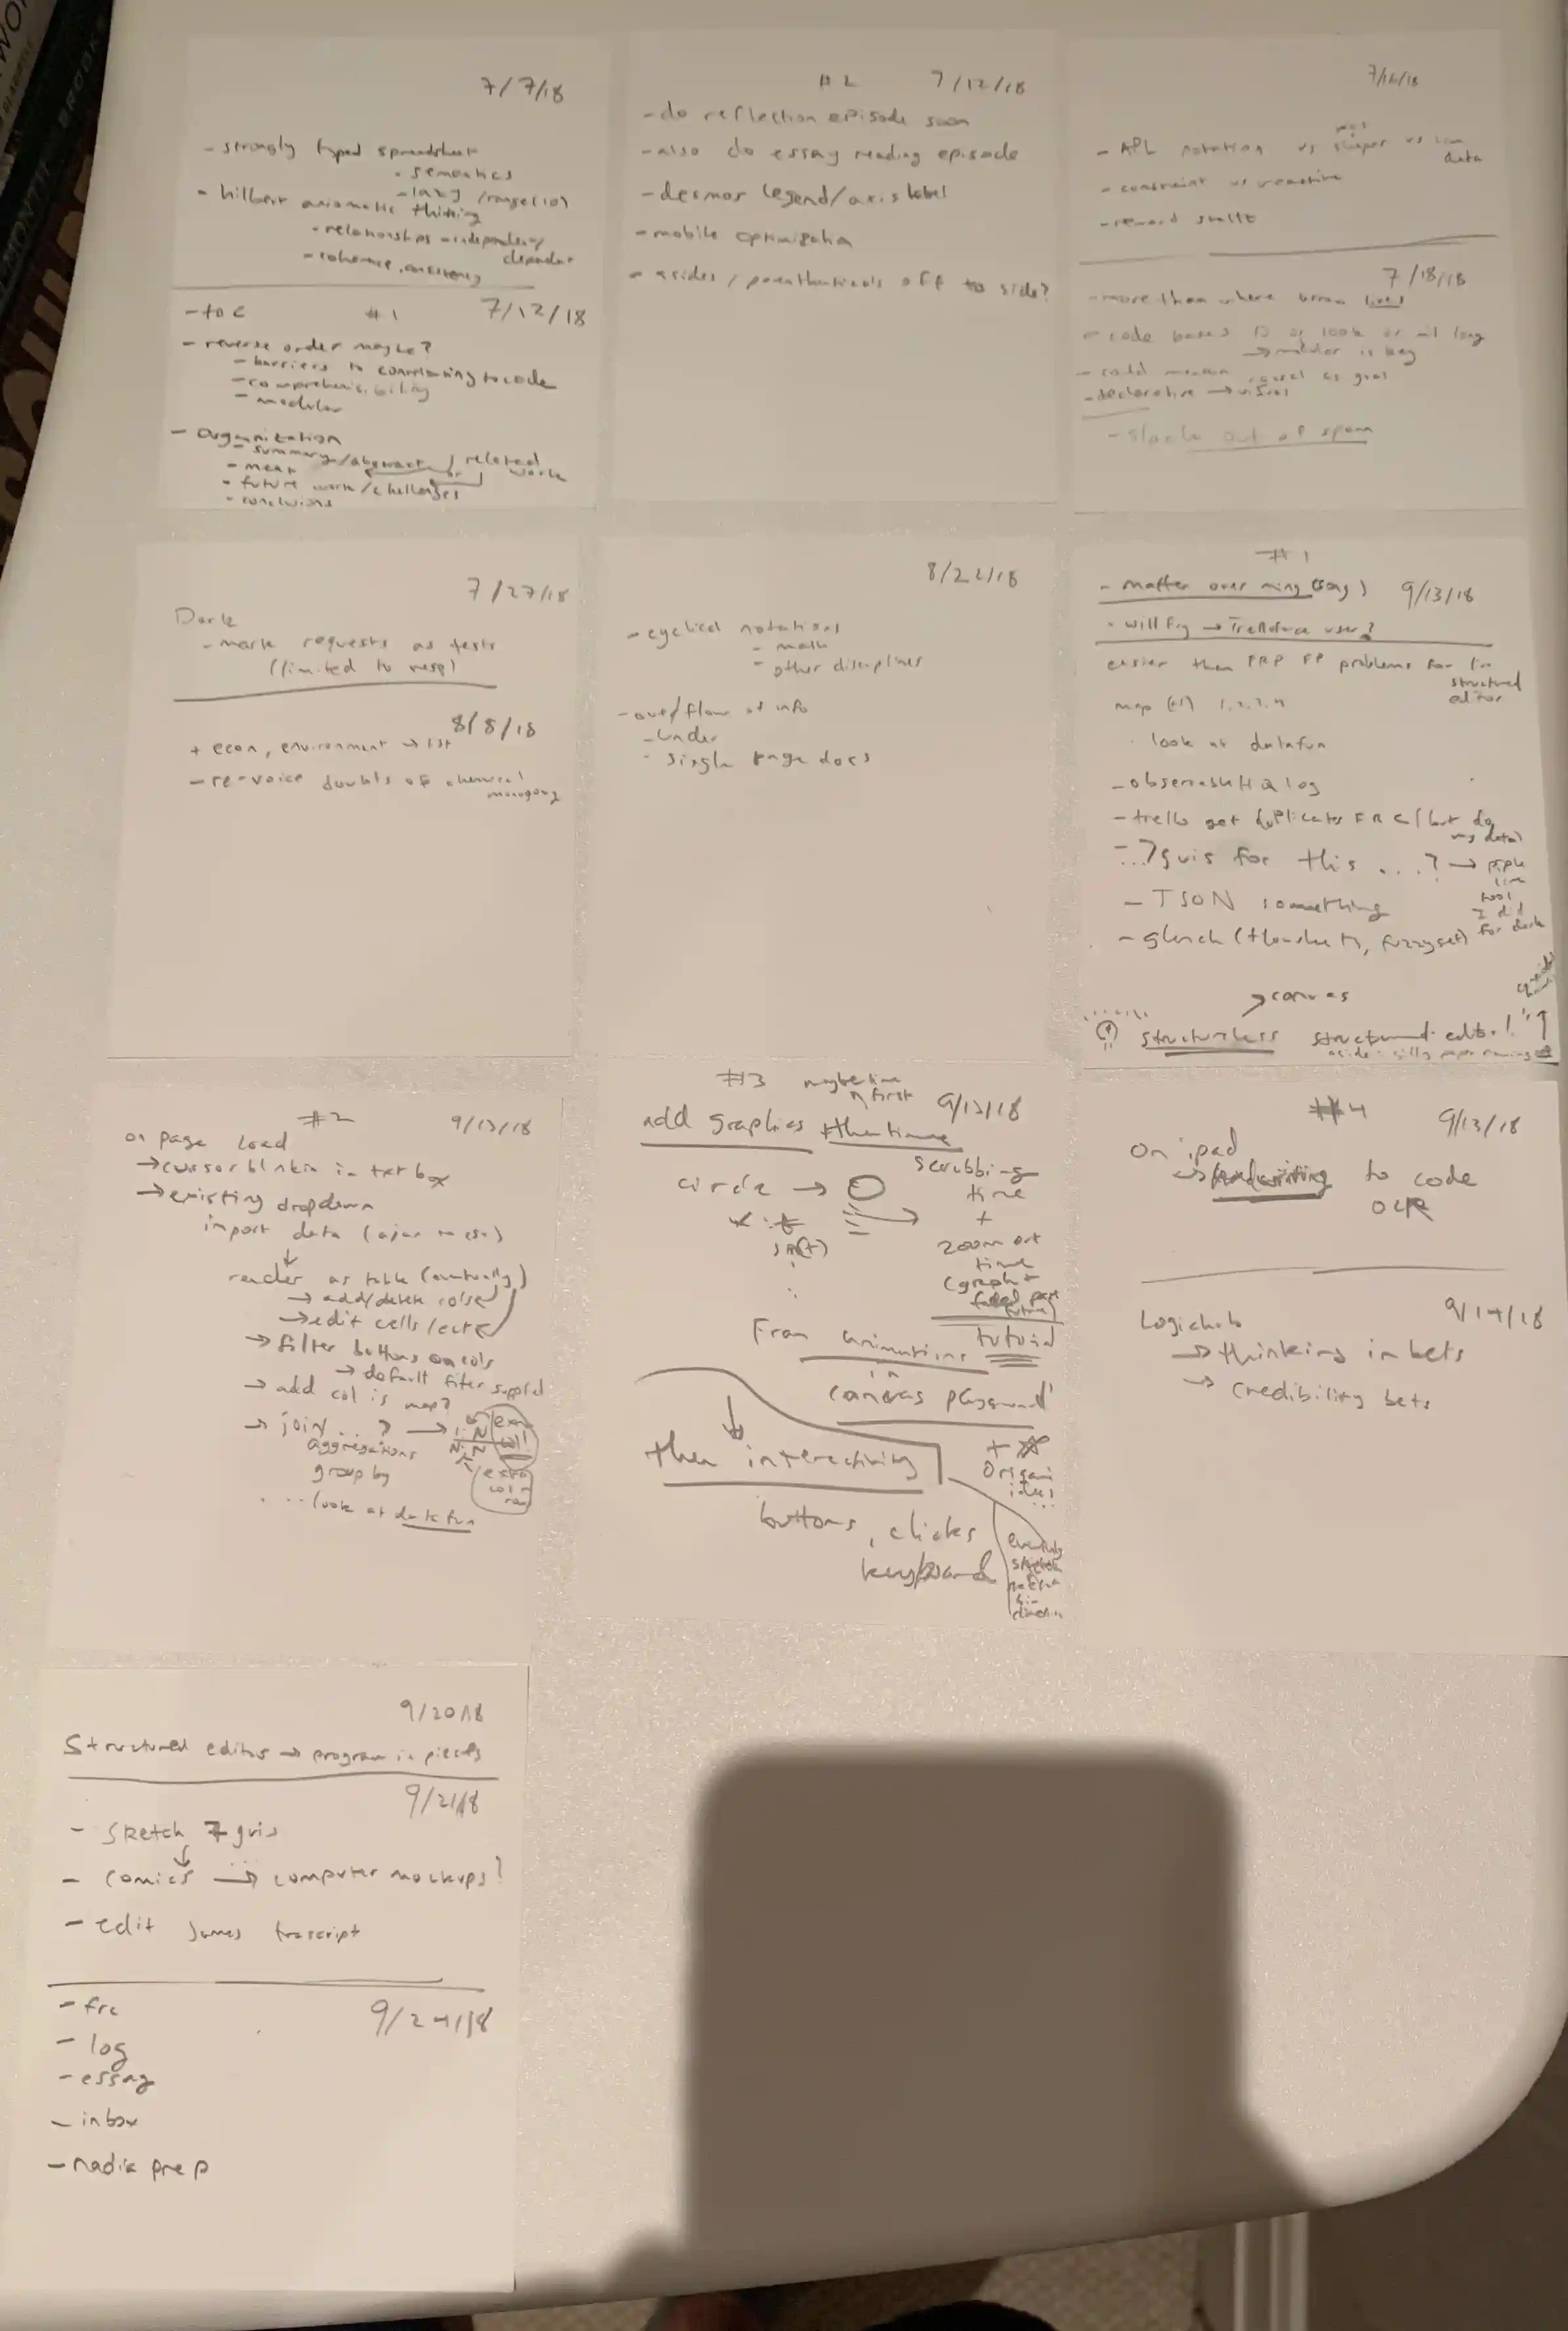 7/7/18
- strongly typed spreadsheet
- semantics
- lazy /range(10)
- hilbert axiomatic thinking
- relationships - independent/
dependent
- coherence, consistency
- toc #1 7/12/18
- reverse order maybe?
- barriers to contributing to code
- comprehensibility
- modular
- Organization
- summary/abstract related
work
- meat
- future work/challenges
or
- conclusions
#2 7/12/18
- do reflection episode soon
- also do essay reading episode
- desmos legend/axis label
- mobile optimization
- asides / parentheticals off to side?
7/16/18
- APL notation vs shaper vs
data
- constraint vs reactive
7/18/18
- more than where brain lives
- code bases 10 or 100k or mil long
→ modular is key
as goal
- declarative → visual
- slack out of spam
7/27/18
Dark
- mark requests as tests
(limited to resp)
8/8/18
+ econ, environment → 1st
- re-voice doubts of
8/22/18
- cyclical notations
- math
- other disciplines
- overflow of info
- under
- single page docs
#1
- matter over ming (song) 9/13/18
- will fry → user?
easier than FRP FP problems for
structured
editor
map (+1) 1,2,3,4
look at datafun
- observableHQ log
- trello get duplicates FRC (but do
my data)
- ...7guis for this ...? → pipe
line
tool
I did
for dark
- JSON something
- glench (flowsheets, fuzzyset)
→ canvas
structureless structured editor!
aside: silly paper naming
#2 9/13/18
on page load
→ cursor blinkin in text box
→ existing dropdown
import data (ajax or csv)
↓
render as table (eventually)
→ add/delete cols
→ edit cells/
→ filter buttons on cols
→ default filter supplied
→ add col is map?
→ join ... ? →
aggregations
group by
... look at datafun
#3 maybe time
first 9/13/18
add graphics then time
circle →
sin(t)
scrubbing
time
+
zoom out
time
(graph +
From animations tutorial
in
canvas playground
↓
then interactivity
+
Origami
ideas
...
buttons, clicks
keyboard
#4 9/13/18
on ipad
→ handwriting to code
OCR
9/14/18
Logichub
→ thinking in bets
→ credibility bets
9/20/18
Structured editors → program in pieces
9/21/18
- sketch 7 guis
↓
- comics → computer mockups?
- edit James transcript
- frc 9/24/18
- log
- essay
- inbox
- nadia prep